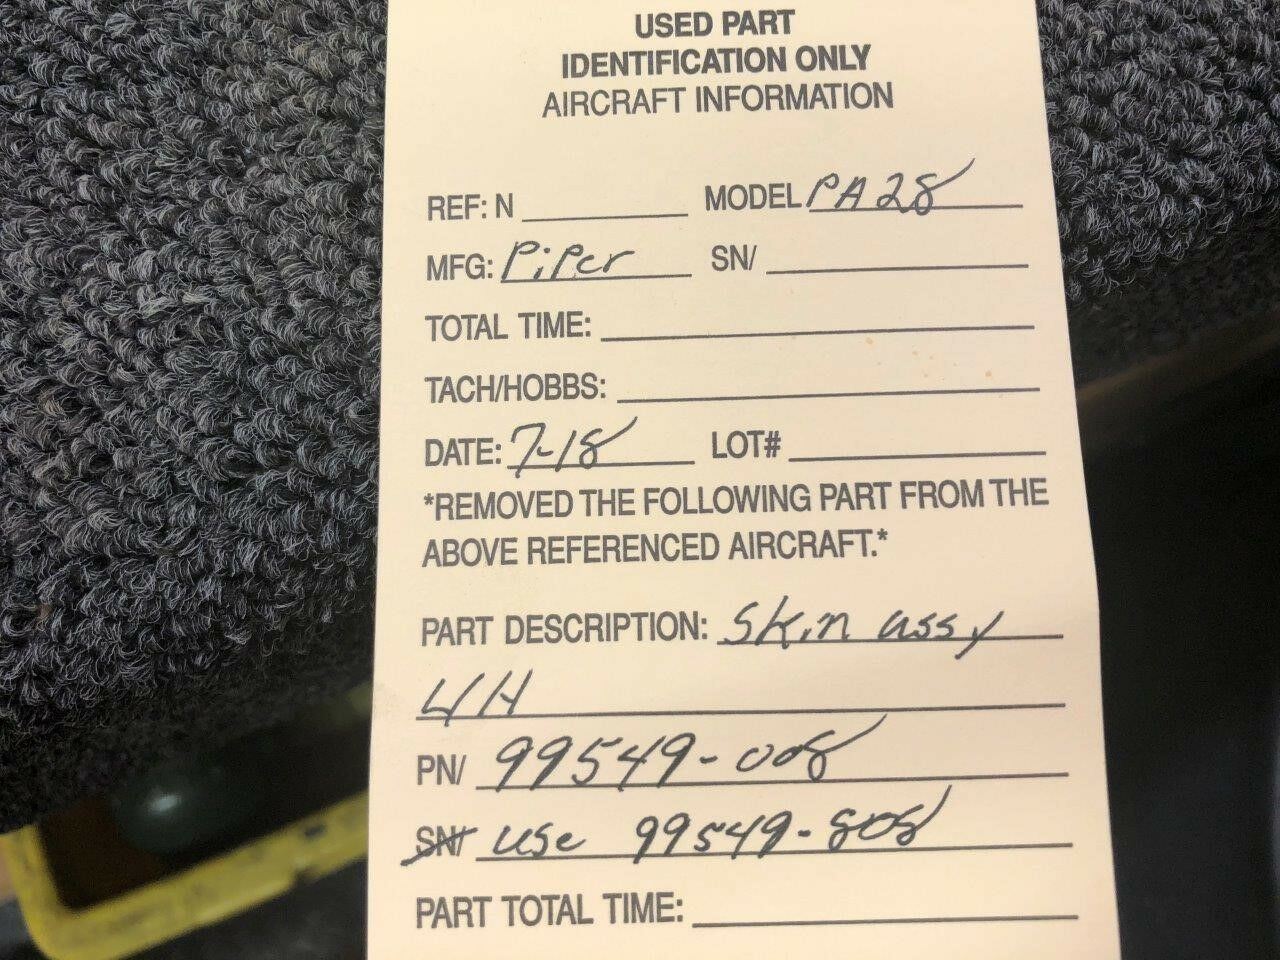 USED PART
IDENTIFICATION ONLY
AIRCRAFT INFORMATION
REF: N MODEL PA28
MFG: Piper SN/
TOTAL TIME:
TACH/HOBBS:
DATE: 7-18 LOT#
*REMOVED THE FOLLOWING PART FROM THE
ABOVE REFERENCED AIRCRAFT.*
PART DESCRIPTION: Skin assy
L/H
PN/ 99549-008
SN/ use 99549-808
PART TOTAL TIME: